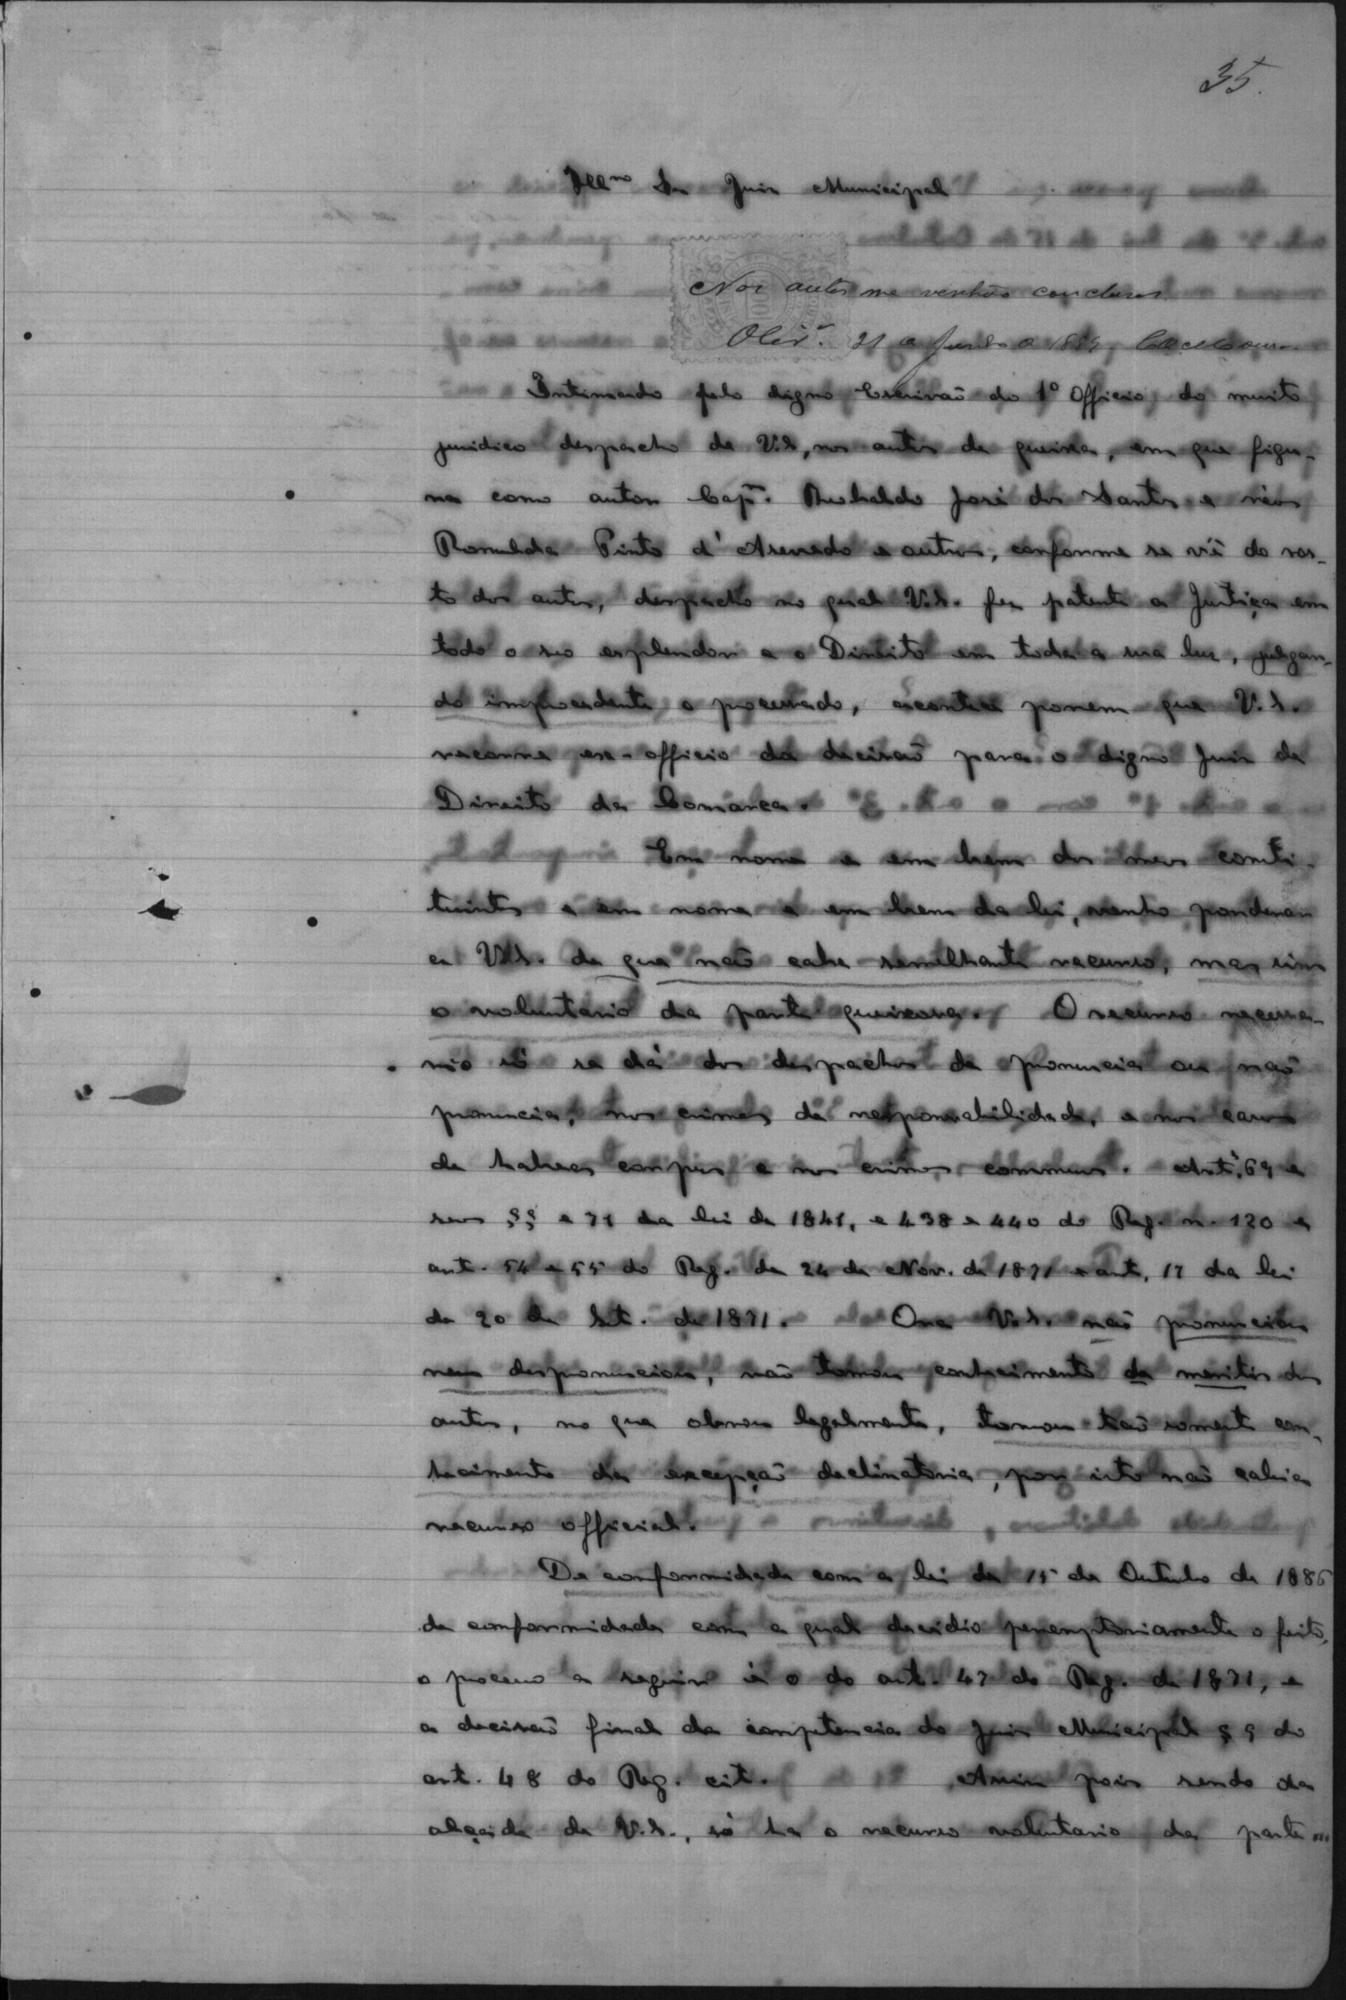 35.
Illmo Sr Juiz Municipal
Nos autos me venhão conclusos.
Olivª. 21 de Junho de 1889,
Intimado pelo digno Escrivão do 1º Officio, do muito
juridico despacho de V.S., nos autos de queixa, em que figu-
ra como autor Capm. Theobaldo José dos Santos e réos
Romualda Pinto d'Azevedo e outros, conforme se vê do ros-
to dos autos, despacho no qual V.S. fez patente a Justiça em
todo o seo esplendor e o Direito em toda a sua luz, julgan-
do improcedente o processado, acontece porem que V.S.
recorre ex-officio da decisão para o digno Juiz de
Direito da Comarca.
Em nome e em bem dos meus consti-
tuintes e em nome e em bem da lei, venho ponderar
a V.S. de que não cabe semilhante recurso, mas sim
o voluntario da parte queixosa. O recurso necessa-
rio só se dá dos despachos de pronuncia ou não
pronuncia, nos crimes de responsabilidade, e nos casos
de habeas corpus e nos crimes communs. Arts. 69 e
seus §§ e 71 da lei de 1841, e 438 e 440 do Reg. n. 120 e
art. 54 e 55 do Reg. de 24 de Nov. de 1871 e art. 17 da lei
de 20 de Set. de 1871. Ora V.S. não pronunciou
nem despronunciou, não tomou conhecimento de meritis dos
autos, no que obrou legalmente, tomou tão somente con-
hecimento da excepção declinatoria, por isto não cabia
recurso official.
De conformidade com a lei de 15 de Outubro de 1886
de conformidade com a qual decidio peremptoriamente o feito,
o processo a seguir é o do art. 47 do Reg. de 1871, e
a decisão final da competencia do Juiz Municipal § 9 do
art. 48 do Reg. cit. Assim pois sendo da
alçada de V.S., só ha o recurso voluntario da parte...